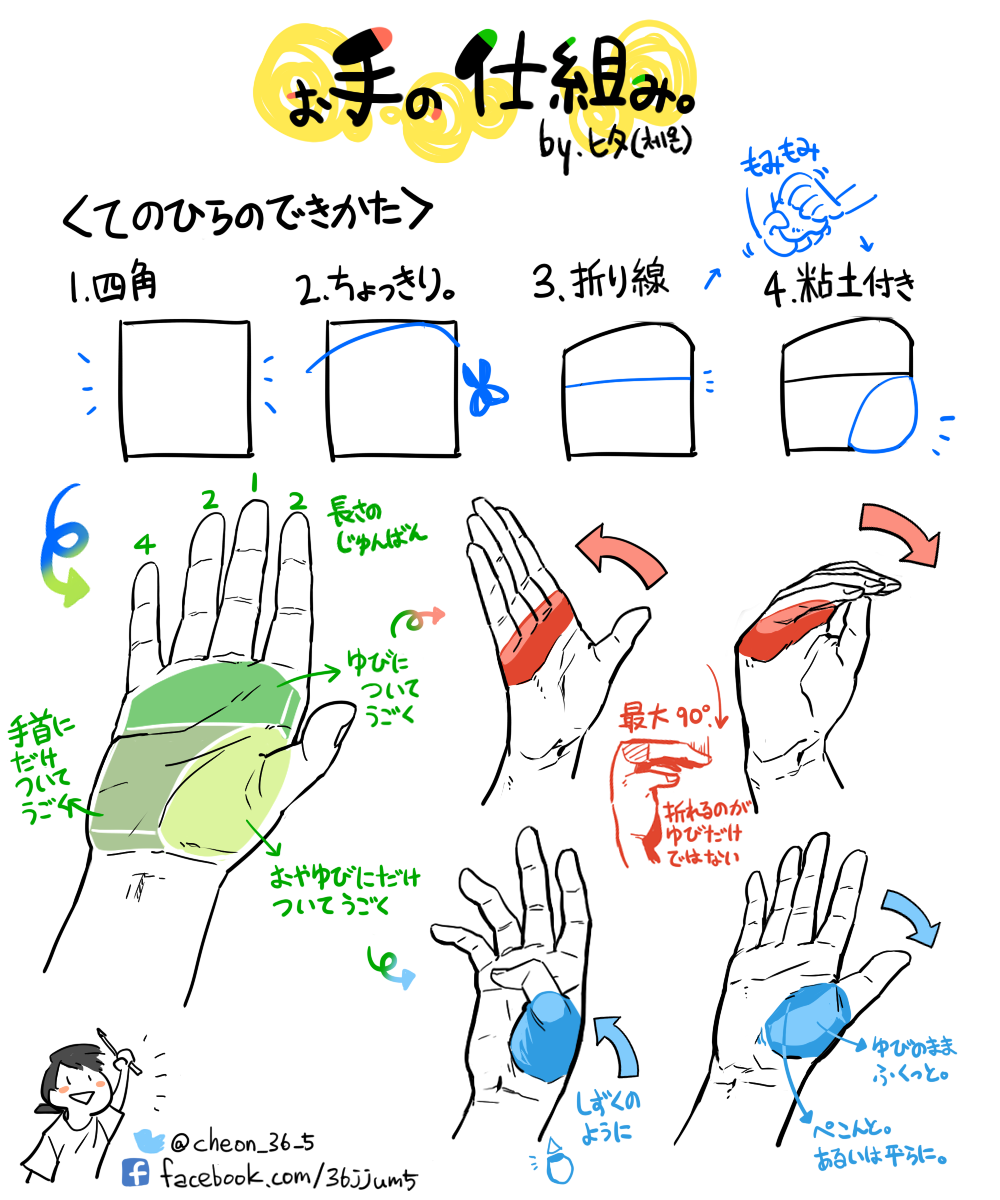 お手の仕組み。
by.ヒタ(체온)
もみもみ
<てのひらのできかた>
1.四角
2.ちょっきり。
3.折り線
4.粘土付き
4
2
1
2
長さの
じゅんばん
ゆびに
ついて
うごく
手首に
だけ
ついて
うごく
おやゆびにだけ
ついてうごく
最大90°.
折れるのが
ゆびだけ
ではない
しずくの
ように
ゆびのまま
ふくっと。
ぺこんと。
あるいは平らに。
@cheon_36_5
facebook.com/36jjum5